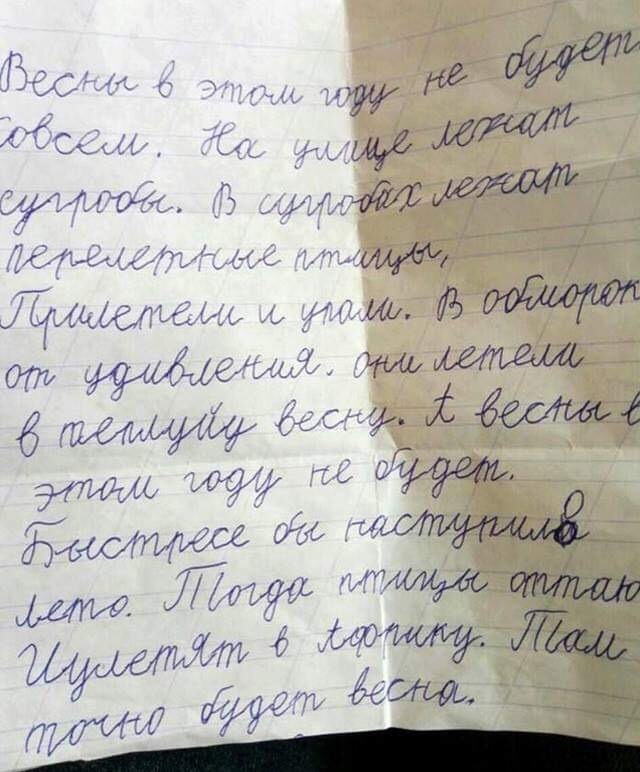 Весны в этом году не будет
совсем. На улице лежат
сугробы. В сугробах лежат
перелетные птицы,
Прилетели и упали. В обморок
от удивления. они летели
в теплуйу весну. А весны в
этом году не будет.
Быстресе бы наступило
лето. Тогда птицы оттаю
Иулетят в Африку. Там
точно будет весна.